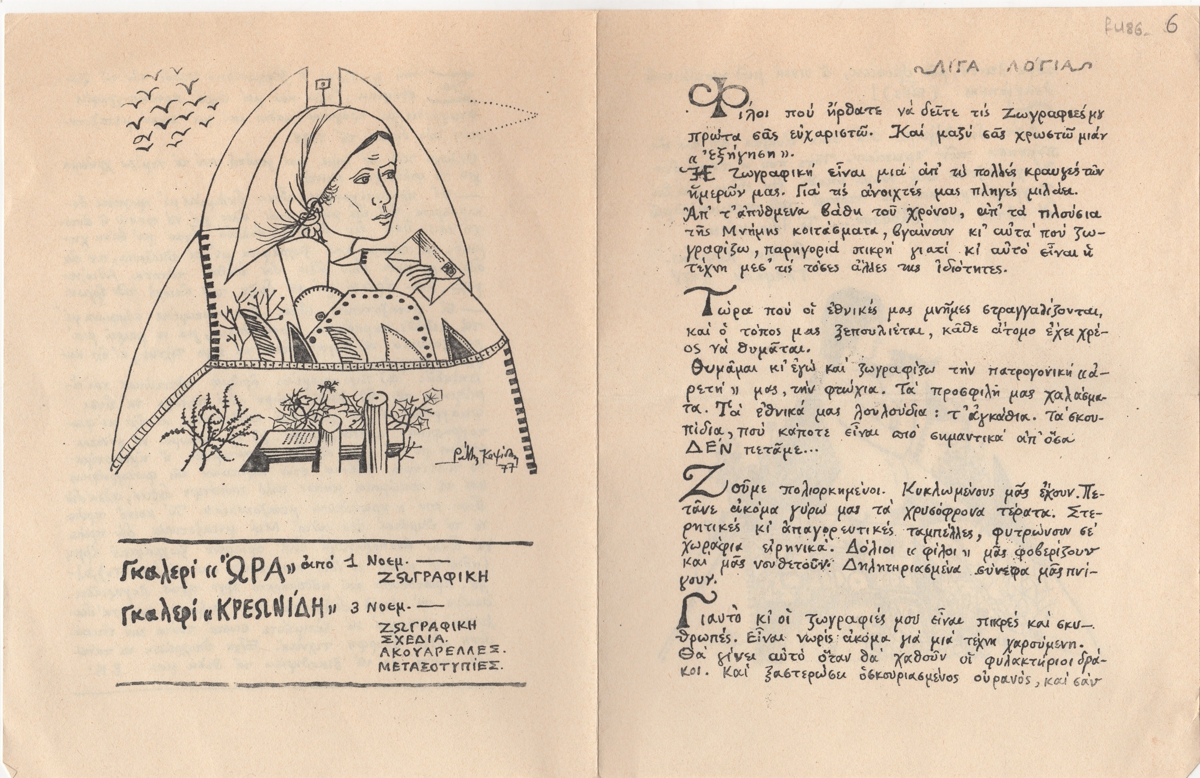 Ράλλης Κοψίδης
77
Γκαλερί «ὭΡΑ» ἀπό 1 Νοεμ. —
ΖΩΓΡΑΦΙΚΗ
Γκαλερί «ΚΡΕΩΝΙΔΗ» 3 Νοεμ. —
ΖΩΓΡΑΦΙΚΗ
ΣΧΕΔΙΑ.
ΑΚΟΥΑΡΕΛΛΕΣ.
ΜΕΤΑΞΟΤΥΠΙΕΣ.
6
ΛΙΓΑ ΛΟΓΙΑ
Φίλοι πού ἤρθατε νά δεῖτε τίς Ζωγραφιές μου
πρῶτα σᾶς εὐχαριστῶ. Καί μαζύ σᾶς χρωστῶ μιάν
«ἐξήγηση».
Ἡ Ζωγραφική εἶναι μιά ἀπ' τίς πολλές κραυγές τῶν
ἡμερῶν μας. Γιά τίς ἀνοιχτές μας πληγές μιλάει.
Ἀπ' τ' ἀπύθμενα βάθη τοῦ χρόνου, ἀπ' τά πλούσια
τῆς Μνήμης κοιτάσματα, βγαίνουν κι' αὐτά πού ζω-
γραφίζω, παρηγοριά πικρή γιατί κι αὐτό εἶναι ἡ
τέχνη μές τίς τόσες ἄλλες της ἰδιότητες.
Τώρα πού οἱ ἐθνικές μας μνῆμες στραγγαλίζονται,
καί ὁ τόπος μας ξεπουλιέται, κάθε ἄτομο ἔχει χρέ-
ος νά θυμᾶται.
Θυμᾶμαι κι' ἐγώ καί ζωγραφίζω τήν πατρογονική «ἀ-
ρετή» μας, τήν φτώχια. Τά προσφιλῆ μας χαλάσμα-
τα. Τά ἐθνικά μας λουλούδια: τ' ἀγκάθια. Τά σκου-
πίδια, πού κάποτε εἶναι πιό σημαντικά ἀπ' ὅσα
ΔΕΝ πετᾶμε...
Ζοῦμε πολιορκημένοι. Κυκλωμένους μᾶς ἔχουν. Πε-
τᾶνε ἀκόμα γύρω μας τά χρυσόφρονα τέρατα. Στε-
ρητικές κι ἀπαγορευτικές ταμπέλλες, φυτρώνουν σέ
χωράφια εἰρηνικά. Δόλιοι «φίλοι» μᾶς φοβερίζουν
καί μᾶς νουθετοῦν. Δηλητηριασμένα σύνεφα μᾶς πνί-
γουν.
Γιαυτό κι οἱ ζωγραφιές μου εἶναι πικρές καί σκυ-
θρωπές. Εἶναι νωρίς ἀκόμα γιά μιά τέχνη χαρούμενη.
Θά γίνει αὐτό ὅταν θά χαθοῦν οἱ φυλακτήριοι δρά-
κοι. Καί ξαστερώσει ὁ σκουριασμένος οὐρανός, καί σάν